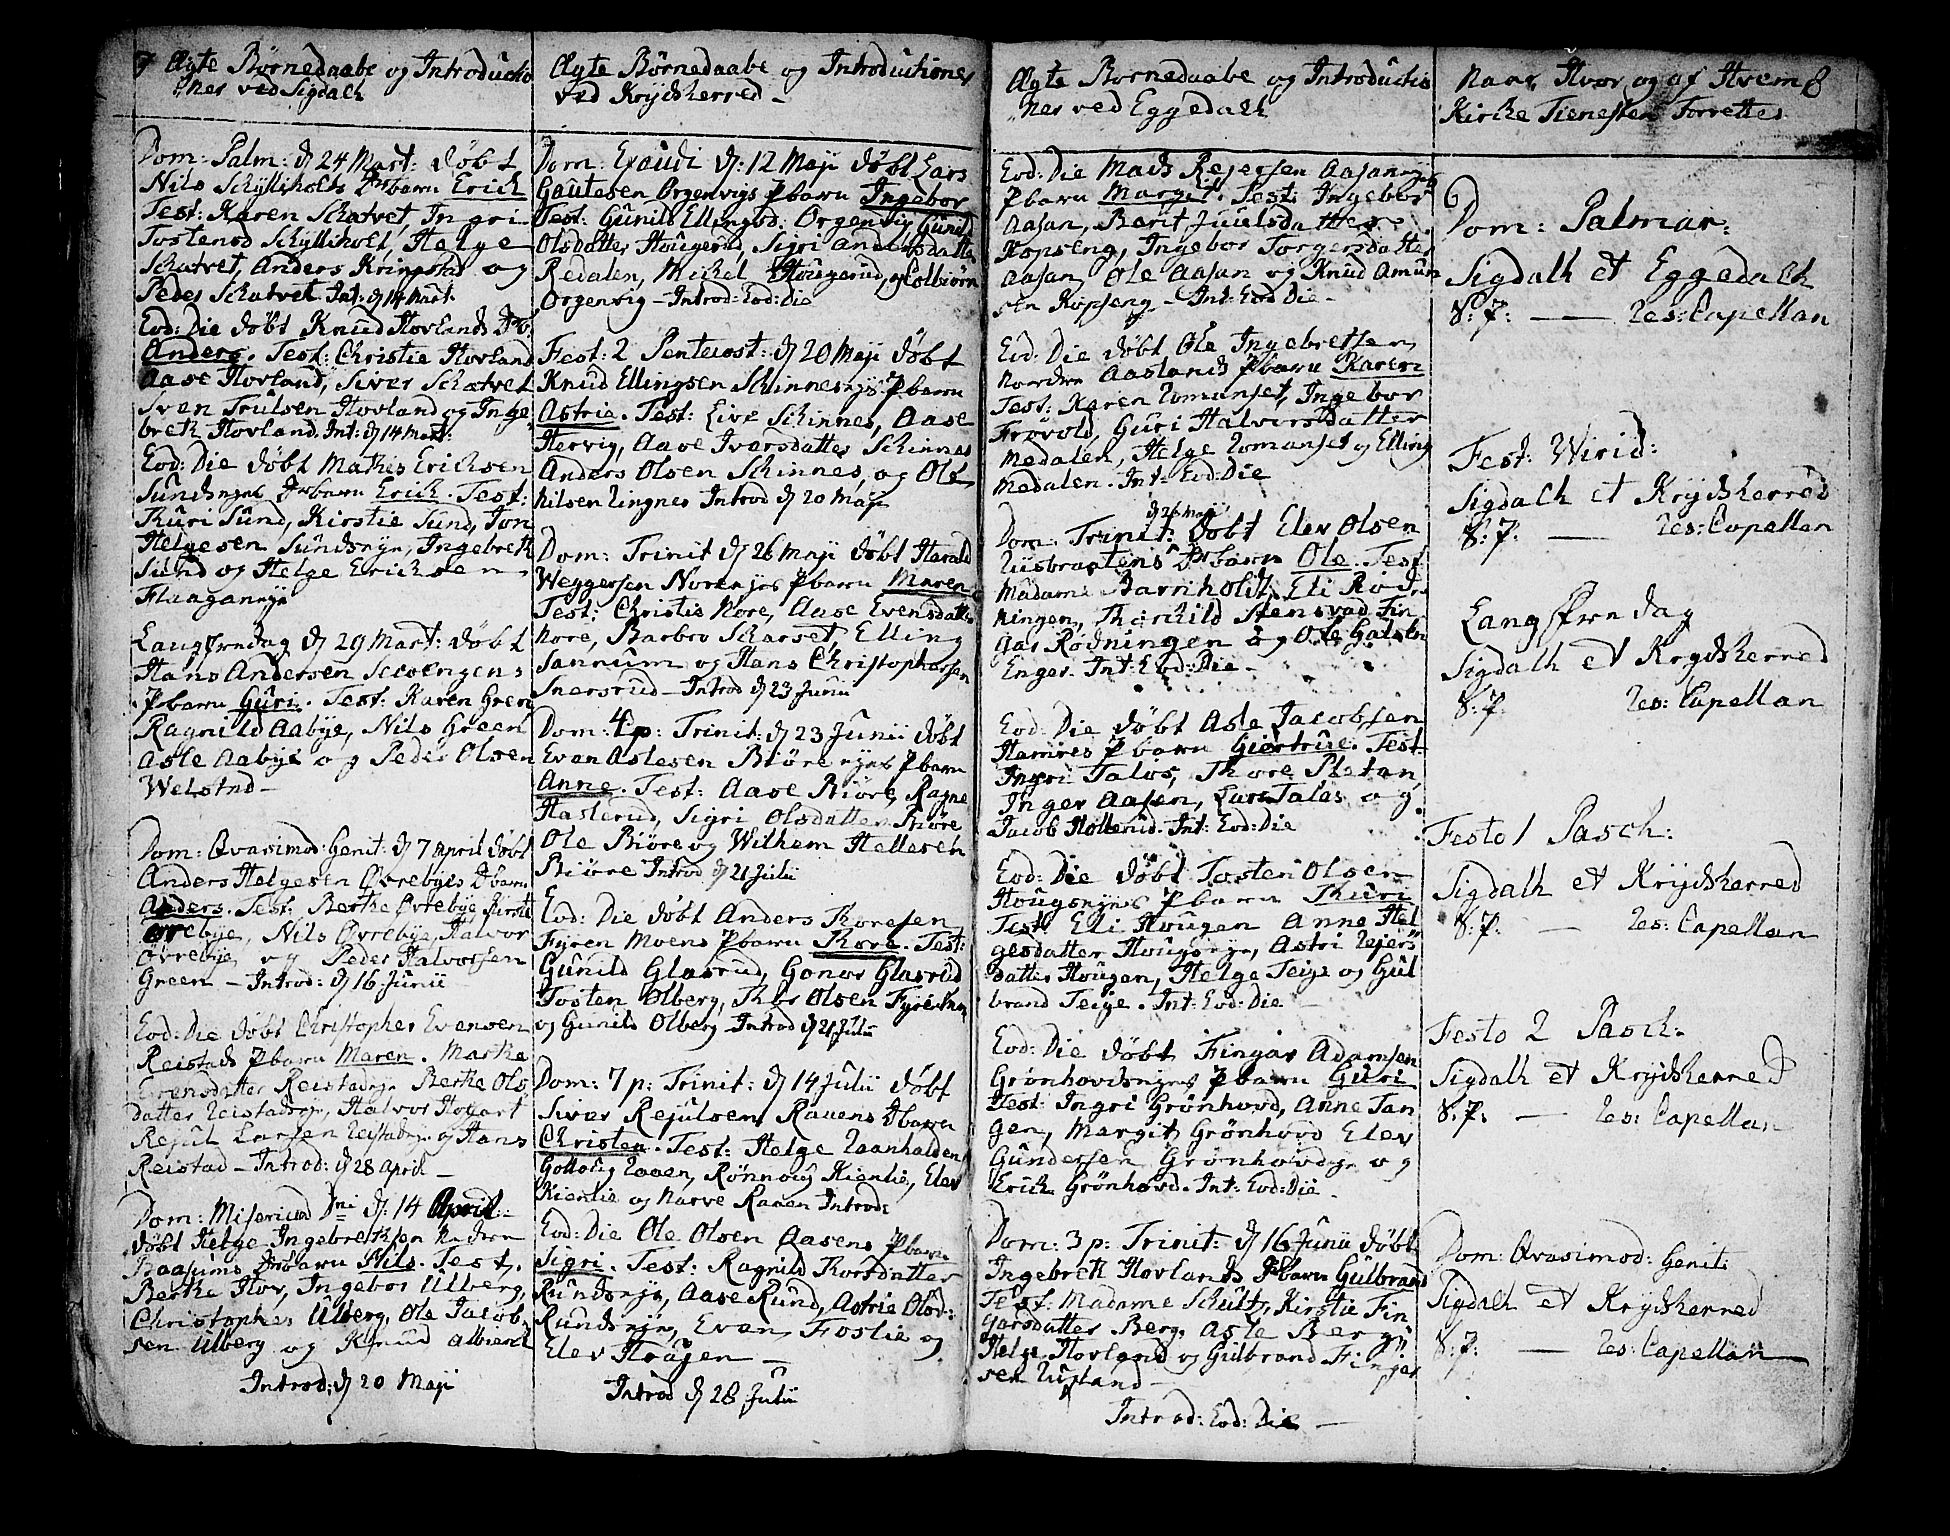 7 Ægte Børnedaabe og Introductio
nes ved Sigdalh
Dom: Palm: d 24 Mart: døbt
Nils Schylliholts Drbarn Erich
Test: Karen Schatvet, Ingri
Tostensd Schylliholt, Helge
Schatvet, Anders og
Peder Schatvet Int: d 14 Mart
Eod: Die døbt Knud Hovlands
Anders. Test: Christie Hovland
Aase Hovland, Siver Schatvet
Sven Trulsen Hovland og Inge
breth Hovland. Int: d 14 Mart:
Eod: Die døbt Mathis Erichsen
Sundsnyes Drbarn Erich. Test:
Thuri Sund, Kirstie Sund, Jon
Helgesen Sundsnye, Ingebreth
Sund og Helge Erichsen
Flaagannye
Langfredag d 29 Mart: døbt
Hans Andersen
Pbarn Guri. Test: Karen Green
Ragnild Aabye, Nils Green
Asle Aabye og Peder Olsen
Welstad
Dom: Qvasimod: Genit: d 7 April døbt
Anders Helgesen Øvrebyes Dbarn
Anders. Test: Berthe Øvrebye, Kirstie
Øvrebye, Nils Øvrebye, Halvor
Øvrebye og Peder Halvorsen
Green – Introd: d 16 Junii
Eod: Die døbt Christopher Evensen
Reistads Pbarn Maren. Marthe
Evensdatter Reistadnye Berthe Ols
datter Reistadnye, Halvor
Rejul Larsen Reistadnye og Hans
Reistad – Introd: d 28 April –
Dom: Misericord Dni d: 14 April
døbt Helge Ingebrethsen Nedre
Baasums Drbarn Nils. Test.
Berthe Hov, Ingebor Ulberg,
Christopher Ulberg, Ole Jacob-
sen Ulberg og Knud Albiend
Introd: d 20 Maji
Ægte Børnedaabe og Introductiones
ved Krydsherred –
Dom: Exaudi d: 12 Maji døbt Lars
Gautesen Orgenvigs Pbarn Ingebor
Test: Gunild Ellingsd: Orgenvig, Gunil
Olsdatter Hougerud, Sigri Andersdatter
Redalen, Michel Hougerud, og Colbiørn
Orgenvig – Introd: Eod: Die
Fest: 2 Pentecost: d 20 Maji døbt
Knud Ellingsen Schinnesnyes Pbarn
Astrie. Test: Live Schinnes, Aase
Hervig, Aase Iversdatter Schinnes
Anders Olsen Schinnes, og Ole
Nilsen Ringnes Introd d 20 Maji
Dom: Trinit d 26 Maji døbt Harald
Weggersen Norenyes Pbarn Maren
Test: Christie Nore, Aase Evensdatter
Nore, Barbro Scharset, Elling
Sannum og Hans Christophersen
Snersrud – Introd d 23 Junii
Dom: 4 p: Trinit: d 23 Junii døbt
Even Aslesen Biørenyes Pbarn
Anne. Test: Aase Biøre, Ragne
Haslerud, Sigri Olsdatter Biøre
Ole Biøre og Wilhem Hellesen
Biøre Introd d 21 Julii
Eod: Die døbt Anders Thoresen
Fyren Moens Pbarn Thore. Test:
Gunild Glasrud, Gonor Glasrud
Tosten Olberg, Thor Olsen
og Gunild Olberg Introd d 21 Julii
Dom: 7 p: Trinit: d 14 Julii døbt
Siver Rejulsen Ravens Dbarn
Christen. Test: Helge
Gollaug Raaen, Rønnaug Kienlie, Elev
Kienlie og Narve Raaen Introd:
Eod: Die Ole Olsen Aasens Pbarn
Sigri. Test: Ragnild Thorsdatter
Rundsnye, Aase Rund, Astrie Olsd:
Rundsnye, Even Foslie og
Elev Haugen –
Introd d 28 Julii
Ægte Børnedaabe og Introductio
nes ved Eggedalh
Eod: Die Mads Rejersen Aasannyes
Pbarn Margit. Test: Ingebor
Aasan, Berit Juulsdatter
Kopseng, Ingebor Torgersdatter
Aasan, Ole Aasan og Knud Amun
sen Kopseng – Int: Eod Die –
Eod: Die døbt Ole Ingebretsen
Nordre Aaslands Pbarn Karen
Test: Karen Romunset, Ingebor
Frøvold, Guri Halvorsdatter
Medalen, Helge Romunset og Elling
Medalen. Int: Eod: Die
d 26 Maji
Dom: Trinit: døbt Elev Olsen
Rusbraatens Drbarn Ole. Test
Madame Barnholdt, Eli Rød
ningen, Thorchild Stensvad, Fin
gar Rødningen og Ole
Enger. Int: Eod: Die –
Eod: Die døbt Asle Jacobsen
Hamres Pbarn Giertrue. Test:
Ingri Talos, Thore
Inger Aasen, Lars Tales og
Jacob Hollerud. Int: Eod: Die
Eod: Die døbt Tosten Olsen
Hougsnyes Pbarn Thuri
Test: Eli Hougen Anne Hel
gesdatter Hougsnye, Astri Rejers
datter Hougen, Helge Teige og Gul
brand Teige. Int: Eod: Die –
Eod: Die døbt Fingar Adamsen
Grønhovdsnyes Pbarn Guri
Test: Ingri Grønhovd, Anne Tan
gen, Margit Grønhovd Elev
Gundersen Grønhovdnye og
Erich Grønhovd. Int: Eod: Die –
Dom: 3 p: Trinit: d 16 Junii døbt
Ingebreth Hovlands Drbarn Gulbrand
Test: Madame Schultz, Kirstie Fin
garsdatter Berg, Asle Berg
Helge Hovland og Gulbrand Fingar
sen Rustand –
Introd: Eod: Die –
Naar, Hvor og af Hvem 8
Kirche Tienesten Forrettes
Dom: Palmar:
Sigdalh et Eggedalh
S: P: — Res: Capellan
Fest: Virid:
Sigdalh et Krydsherred
S: P: — Res: Capellan
Langfredag
Sigdalh et Krydsherred
S: P: Res: Capellan
Festo 1 Pasch:
Sigdalh et Krydsherred
S: P: — Res: Capellan
Festo 2 Pasch:
Sigdalh et Krydsherred
S: P: — Res: Capellan
Dom: Qvasimod: Genit:
Sigdalh et Krydsherred
S: P: — Res: Capellan